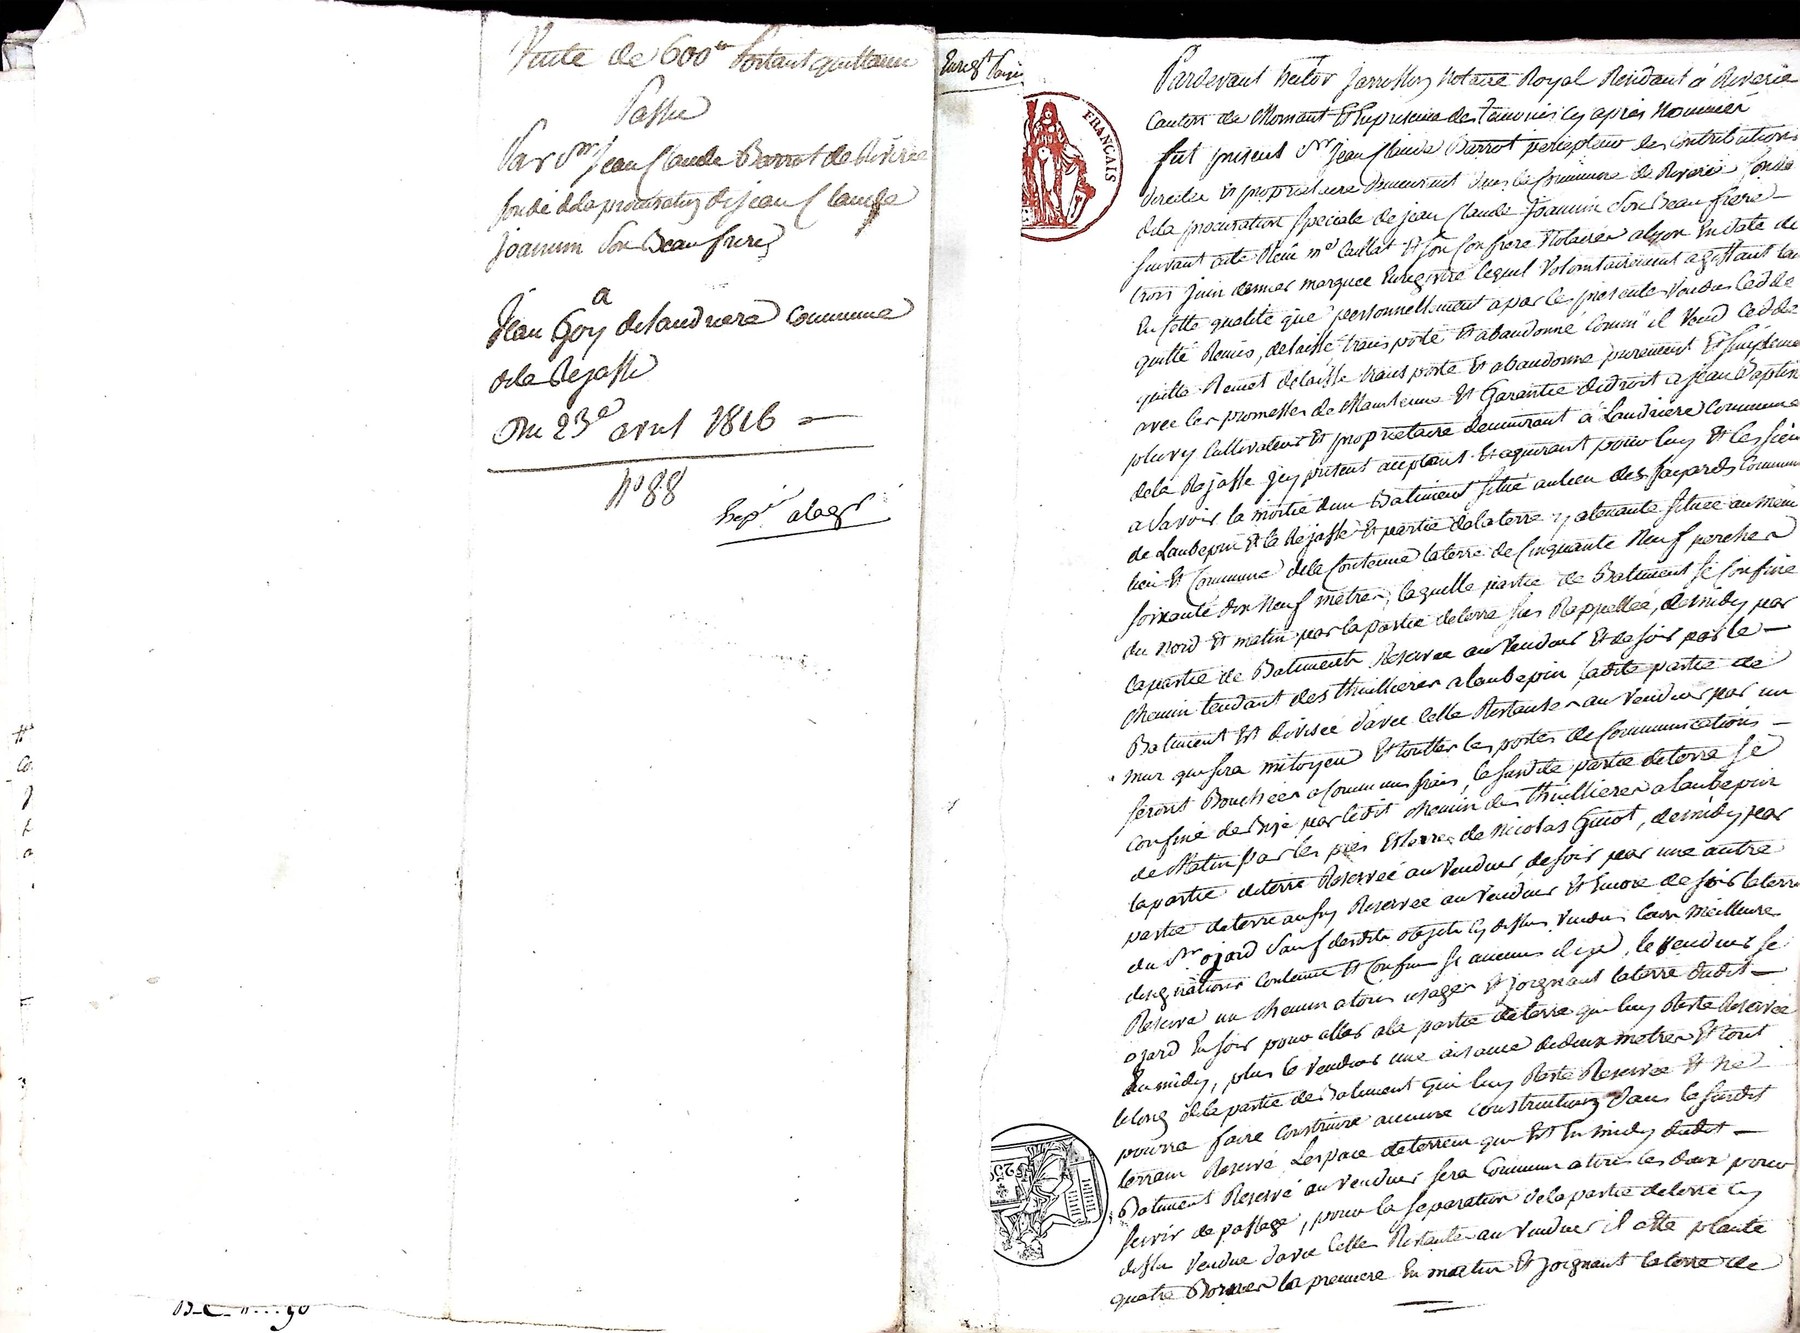 Vente de 600 tt Portant quittance
Passée
Par Sr Jean Claude Barrot de Riverie
fondé de la procuration de jean Claude
Joannin Son Beau frere
a
Jean Goy de Landriere Commune
de la Rejasse
Du 23e avril 1816
No 88
Expé alagr
Enregt
FRANCAIS
Pardevant hector Notaire Royal Résidant a Riverie
Canton de Mornant Et En présence des temoins Cy après Nommés
fut présent Sr Jean Claude Barrot percepteur des Contributions
directes Et propriétaire demeurant dans la Commune de Riverie fondé
de la procuration Spéciale de jean Claude Joannin Son Beau frere
Suivant acte Reçu Me Caillat Et Son Confrere Notaires a lyon En date du
trois Juin dernier marquee Enregistré lequel Volontairement agissant tant
En cette qualité que personnellement a par les présentes Vendu Cédé
quitté Remis, delaissé transporté Et abandonné Comm'il Vend Cedde
quitte Remet delaisse transporte Et abandonne purement Et Simplement
avec les promesses de Maintenue Et Garantie de droit a jean Baptiste
Cultivateur Et propriétaire demeurant à Landriere Commune
de la Rejasse Jcy présent acceptant Et aquerant pour luy Et les Siens
a Savoir la moitié d'un Batiment Situé au lieu des fayards Commune
de Laubepin Et la Rejasse Et partie de la terre y atenante Située au même
lieu Et Commune de la Contenue la terre de Cinquante Neuf perches
Soixante dix Neuf metres, laquelle partie de Batiment Se Confine
du Nord Et matin par la partie de terre Sus Rappellée, de midy par
la partie de Batiments Reservée au Vendeur Et de Soir par le
Chemin tendant des thuillieres a laubepin ladite partie de
Batiment Est divisée d'avec Celle Restante au Vendeur par un
mur qui Sera mitoyen Et touttes les portes de Communications
Seront Bouchées a Communs frais, la Susdite partie de terre Se
Confine de Bize par ledit Chemin des thuillieres a laubepin
de Matin par les prés Et terres de Nicolas Guiot, de midy par
la partie de terre Reservée au Vendeur de Soir par une autre
partie de terre aussy Reservée au Vendeur Et Encore de Soir la terre
du Sr ojard Sauf desdits objets Cy dessus Vendus leurs Meilleures
designations Contenue Et Confins Si aucuns il y a, le Vendeur Se
Reserve un Chemin a tous usages Et joignant la terre dudit
ojard En Soir pour aller a la partie de terre qui luy Reste Reservée
En midy, plus le Vendeur une aisance de deux metres Et tout
le long de la partie de Batiment qui luy Reste Reservée Et Ne
pourra faire Construire aucune Construction dans le Susdit
terrain Reservé Lespace de terrein qui Est En midy dudit
Batiment Reservé au Vendeur Sera Commun a tous les deux pour
Servir de passage, pour la Separation de la partie de terre Cy
dessus Vendue davec Celle Restante au Vendeur il a été planté
quatre Bornes la premiere En matin Et Joignant la terre de